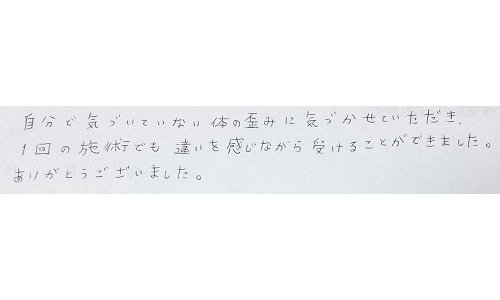 自分で気づいていない体の歪みに気づかせていただき、
1回の施術でも違いを感じながら受けることができました。
ありがとうございました。